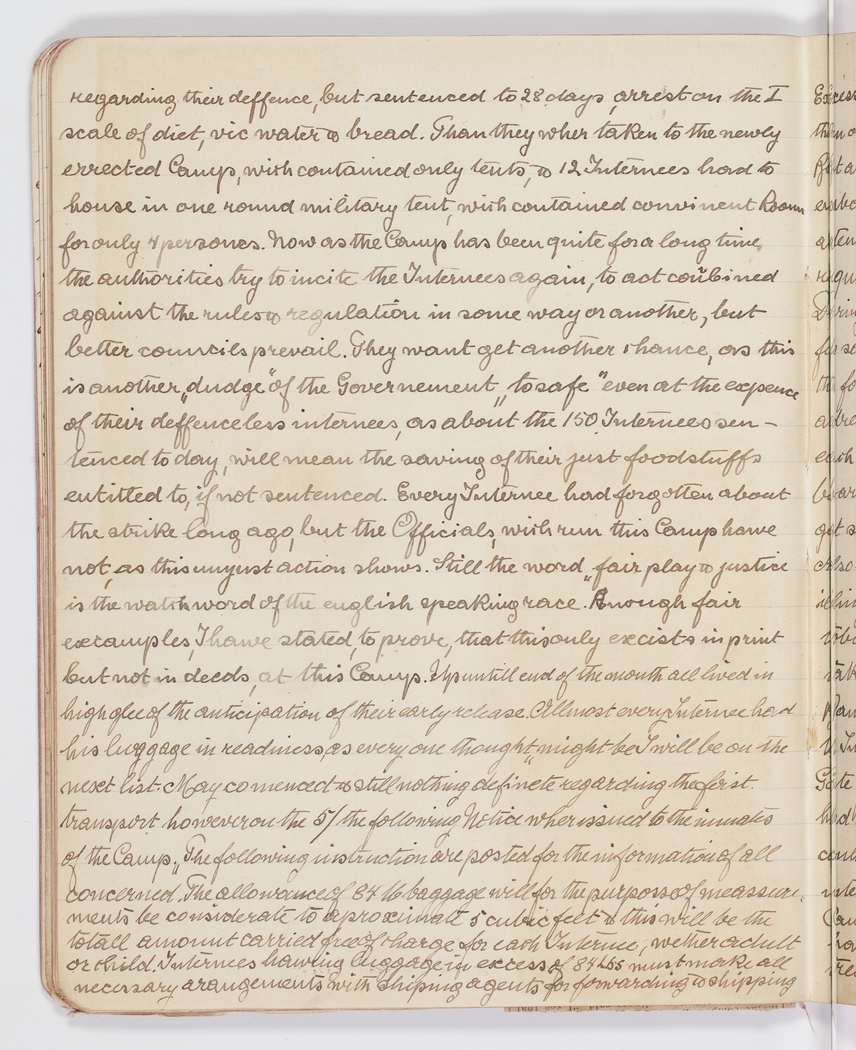 regarding their deffence, but sentenced to 28 days, arrest on the I
scale of diet, vic water & bread. Than they wher taken to the newly
errected Camp, wich contained only tents, & 12 Internees had to
house in one round military tent, wich contained convinent Room
for only 4 persones. Now as the Camp has been quite for a long time,
the authorities try to incite the Internees again, to act combined
against the rules & regulation in some way or another, but
better councils prevail. They want get another chance, as this
is another „dudge" of the Governement „to safe" even at the expence
of their deffenceless internees, as about the 150 Internees sen-
tenced to day, will mean the saving of their just foodstuffs
entitled to, if not sentenced. Every Internee had forgotten about
the strike long ago, but the Officials, wich run this Camp have
not, as this unjust action shows. Still the word „fair play & justice
is the watchword of the english speaking race. Enough fair
excamples, I have stated, to prove, that this only excists in print
but not in deeds, at this Camp. Up untill end of the month all lived in
high glee of the anticipation of their early release. Allmost every Internee had
his luggage in readiness, as every one thought „might be I will be on the
next list. May comenced & still nothing definete regarding the first
transport however on the 5/ the following Notice wher issued to the inmates
of the Camp. „The following instruction are posted for the information of all
concerned. The allowance of 84 lb baggage will for the purposse of meassure-
ments be considerate to aproximate 5 cubic feet & this will be the
totall amount carried free of charge for each Internee, wether adult
or child. Internees having luggage in excess of 84 Lbs must make all
necessary arangements with shiping agents for forwarding & shipping